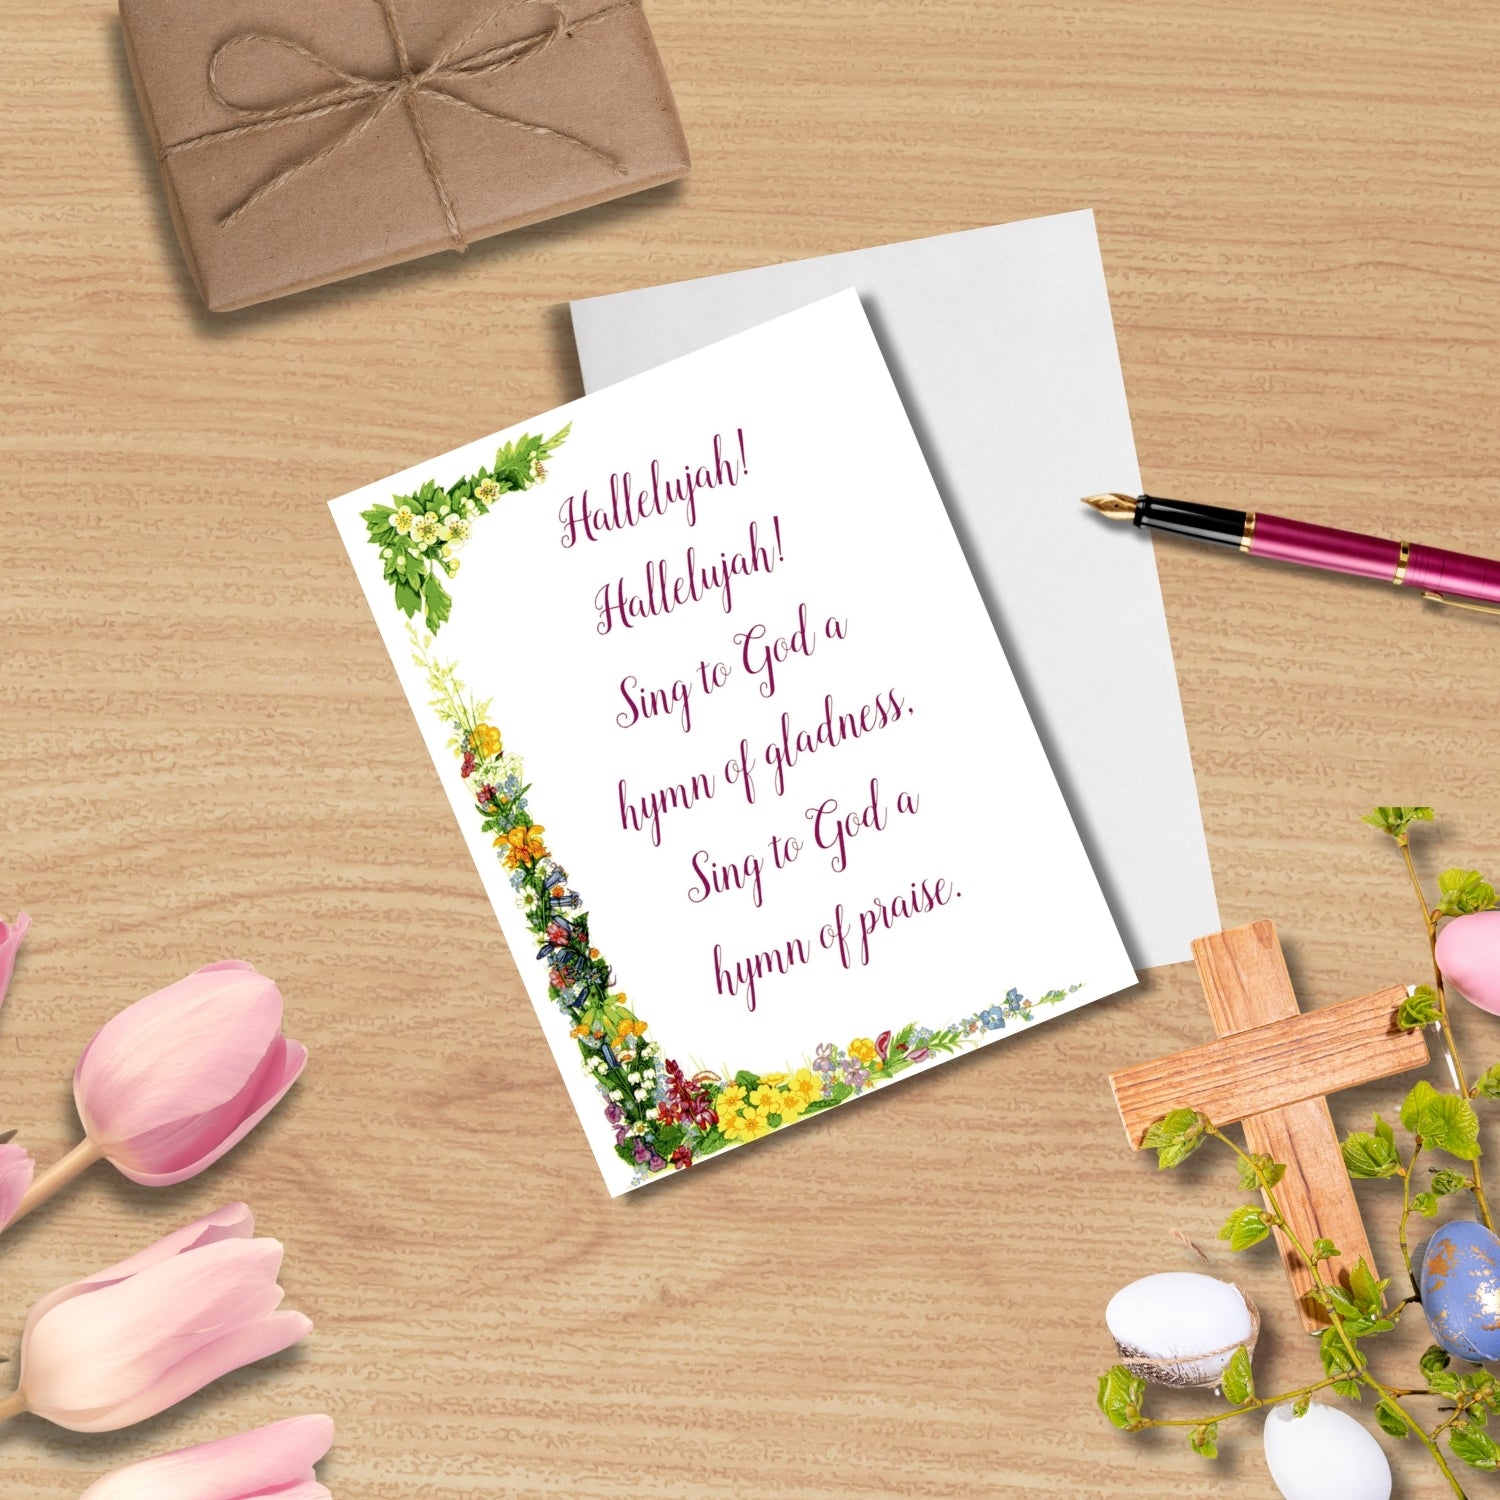 Hallelujah!
Hallelujah!
Sing to God a
hymn of gladness,
Sing to God a
hymn of praise.